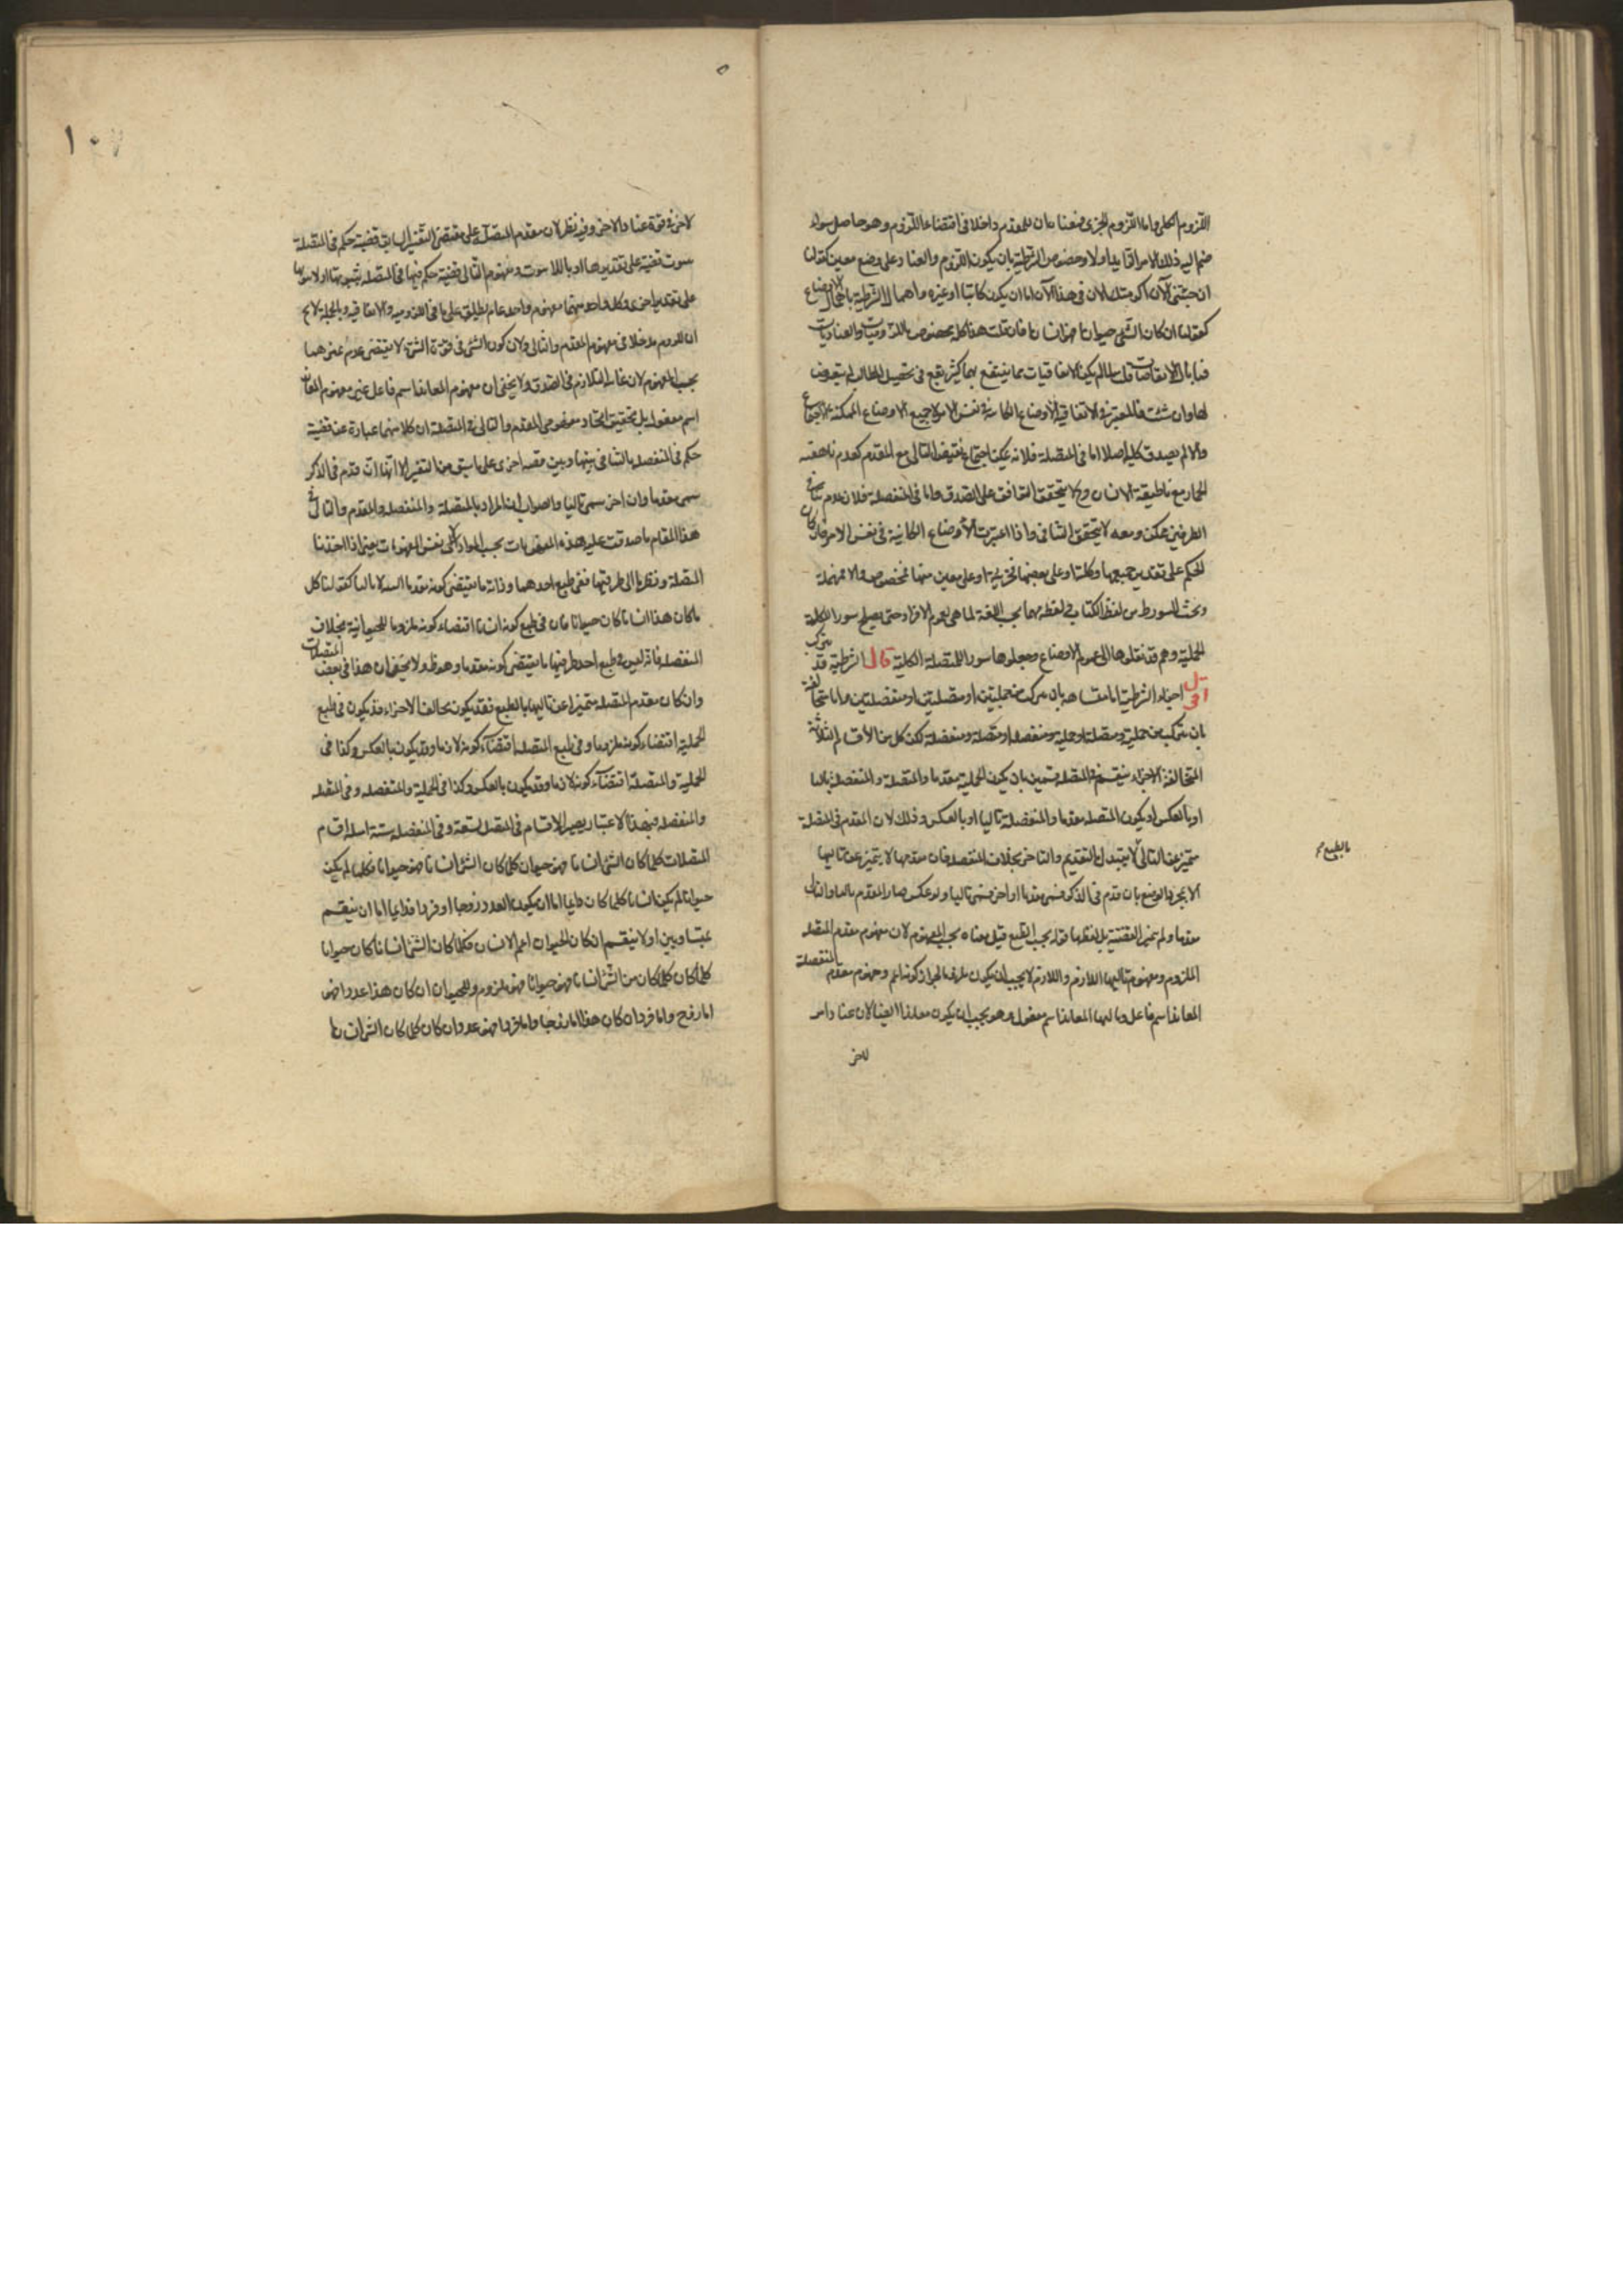 اللزوم الكلى واما اللزوم الجزى فمعناه ان للمقدم دخلا فى اقتضاء اللزوم وهو حاصل سواء
ضم اليه ذلك الامر الزايد او لا وخصوص الشرطية بان يكون اللزوم والعناد على وضع معين كقولنا
ان جئتنى الآن اكرمتك الان فى هذا الآن اما ان يكون كاتبا او غيره واهمال الشرطية باهمال الاوضاع
كقولنا ان كان الشى حيوانا فهو انسان فان قلت هذا كله مخصوص باللزوميات والعناديات
فما بال الاتفاقيات قلت لما لم يكن الاتفاقيات مما ينتفع بها كثير نفع فى تحصيل المطالب لم يتعرض
لها وان شئت فالمعتبر فى الاتفاقية الاوضاع الكائنة فى نفس الامر لا جميع الاوضاع الممكنة الاجتماع
والا لم يصدق كلية اصلا اما فى المتصلة فلانه يمكن اجتماع نقيض التالى مع المقدم كعدم ناهقية
الحمار مع ناطقية الانسان ولا يتحقق التوافق على الصدق واما فى المنفصلة فلان عدم تنافى
الطرفين ممكن ومعه لا يتحقق التنافى واذا اعتبرت الأوضاع الكائنة فى نفس الامر فان كان
الحكم على تقدير جميعها فكلية او على بعضها فجزئية او على معين منها فمخصوصة والا فمهملة
وبحث السور ظ من لفظ الكتاب فى لفظة مهما بحسب اللغة انما هى لعموم الافراد حتى يصلح سورا للكلية
الحملية وهم قد نقلوها الى عموم الاوضاع وجعلوها سورا للمتصلة الكلية قال الشرطية قد تتركب
اقول اجزاء الشرطية اما متشابهة بان تتركب من حمليتين او متصلتين او منفصلتين واما متخالفة
بان تتركب من حملية ومتصلة او حملية ومنفصلة او متصلة ومنفصلة لكن كل من الأقسام الثلاثة
المتخالفة الاجزاء ينقسم فى المتصلة قسمين بان يكون الحملية مقدما والمتصلة والمنفصلة تاليا
او بالعكس او يكون المتصلة مقدما والمنفصلة تاليا او بالعكس وذلك لان المقدم فى المتصلة
متميز عن التالى لا يتبدل بالتقديم والتاخر بخلاف المنفصلة فان مقدمها لا يتميز عن تاليها
بالطبع صح
الا بمجرد الوضع بان قدم فى الذكر فسمى مقدما او اخر فسمى تاليا ولو عكس صار المقدم تاليا والتالى
مقدما ولم يتغير القضية بل لفظها قوله بحسب الطبع قيل معناه بحسب المفهوم لان مفهوم مقدم المتصلة
الملزوم ومفهوم تاليها اللازم واللازم لا يجب ان يكون ملزوما لجواز كونه اعم ومفهوم مقدم المنفصلة
المعاند اسم فاعل وتاليها المعاند اسم مفعول وهو يجب ان يكون معاندا ايضا لان عناد امر
لاخر
لاخر فى قوة عناد الاخر وفيه نظر لان مقدم المتصلة على مقتضى التفسير السابق قضية حكم فى المتصلة
بثبوت قضية على تقديرها او باللاثبوت ومفهوم التالى قضية حكم فيها فى المتصلة بثبوتها او لا ثبوتها
على تقدير اخرى وكل واحد منهما مفهوم واحد عام يطلق على ما فى اللزومية والاتفاقية وبالجملة لا يخ
ان للزوم مدخلا فى مفهوم المقدم والتالى ولان كون الشى فى قوة الشى لا يقتضى عدم تميزهما
بحسب المفهوم لان غايته التلازم فى الصدق ولا يخفى ان مفهوم المعاند اسم فاعل غير مفهوم المعاند
اسم مفعول بل تحقيق اتحاد مفهومى المقدم والتالى فى المنفصلة ان كلا منهما عبارة عن قضية
حكم فى المنفصلة بالتنافى بينها وبين قضية اخرى على ما سبق من التفسير الا انها ان قدم فى الذكر
سمى مقدما وان اخر سمى تاليا والصواب ان المراد بالمتصلة والمنفصلة والمقدم والتالى فى
هذا المقام ما صدقت عليه هذه المفهومات بحسب المواد لا نفس المفهومات بمعنى اذا اخذنا
المتصلة ونظرنا الى طرفيها ففى طبع احدهما وذاته ما يقتضى كونه مقدما البتة لا تاليا كقولنا كل
ما كان هذا انسانا كان حيوانا فان فى طبع كونه انسانا اقتضاء كونه ملزوما للحيوانية بخلاف
المنفصلة فانه ليس فى طبع احد طرفيها ما يقتضى كونه مقدما وهو ظ ولا يخفى ان هذا فى بعض المتصلات
وان كان مقدم المتصلة متميزا عن تاليها بالطبع فقد يكون مخالف الاجزاء قد يكون فى طبع
الحملية اقتضاء كونه ملزوما وفى طبع المتصلة اقتضاء كونه لازما وقد يكون بالعكس وكذا فى
الحملية والمتصلة اقتضاء كونه لازما وقد يكون بالعكس وكذا فى الحملية والمنفصلة وفى المتصلة
والمنفصلة فبهذا الاعتبار يصير الاقسام فى المتصلة تسعة وفى المنفصلة ستة امثلة اقسام
المتصلات كلما كان الشى انسانا فهو حيوان كلما كان كلما كان الشى انسانا فهو حيوانا فكلما لم يكن
حيوانا لم يكن انسانا كلما كان دايما اما ان يكون العدد زوجا او فردا فدايما اما ان ينقسم
بمتساويين او لا ينقسم ان كان الحيوان اعم من الانسان فكلما كان الشى انسانا كان حيوانا
كلما كان كلما كان الشى انسانا فهو حيوانا فهو ملزوم للحيوان ان كان هذا عددا فهو
اما زوج واما فرد ان كان هذا اما زوجا واما فردا فهو عدد ان كان كلما كان الشى انسانا
١٠٧